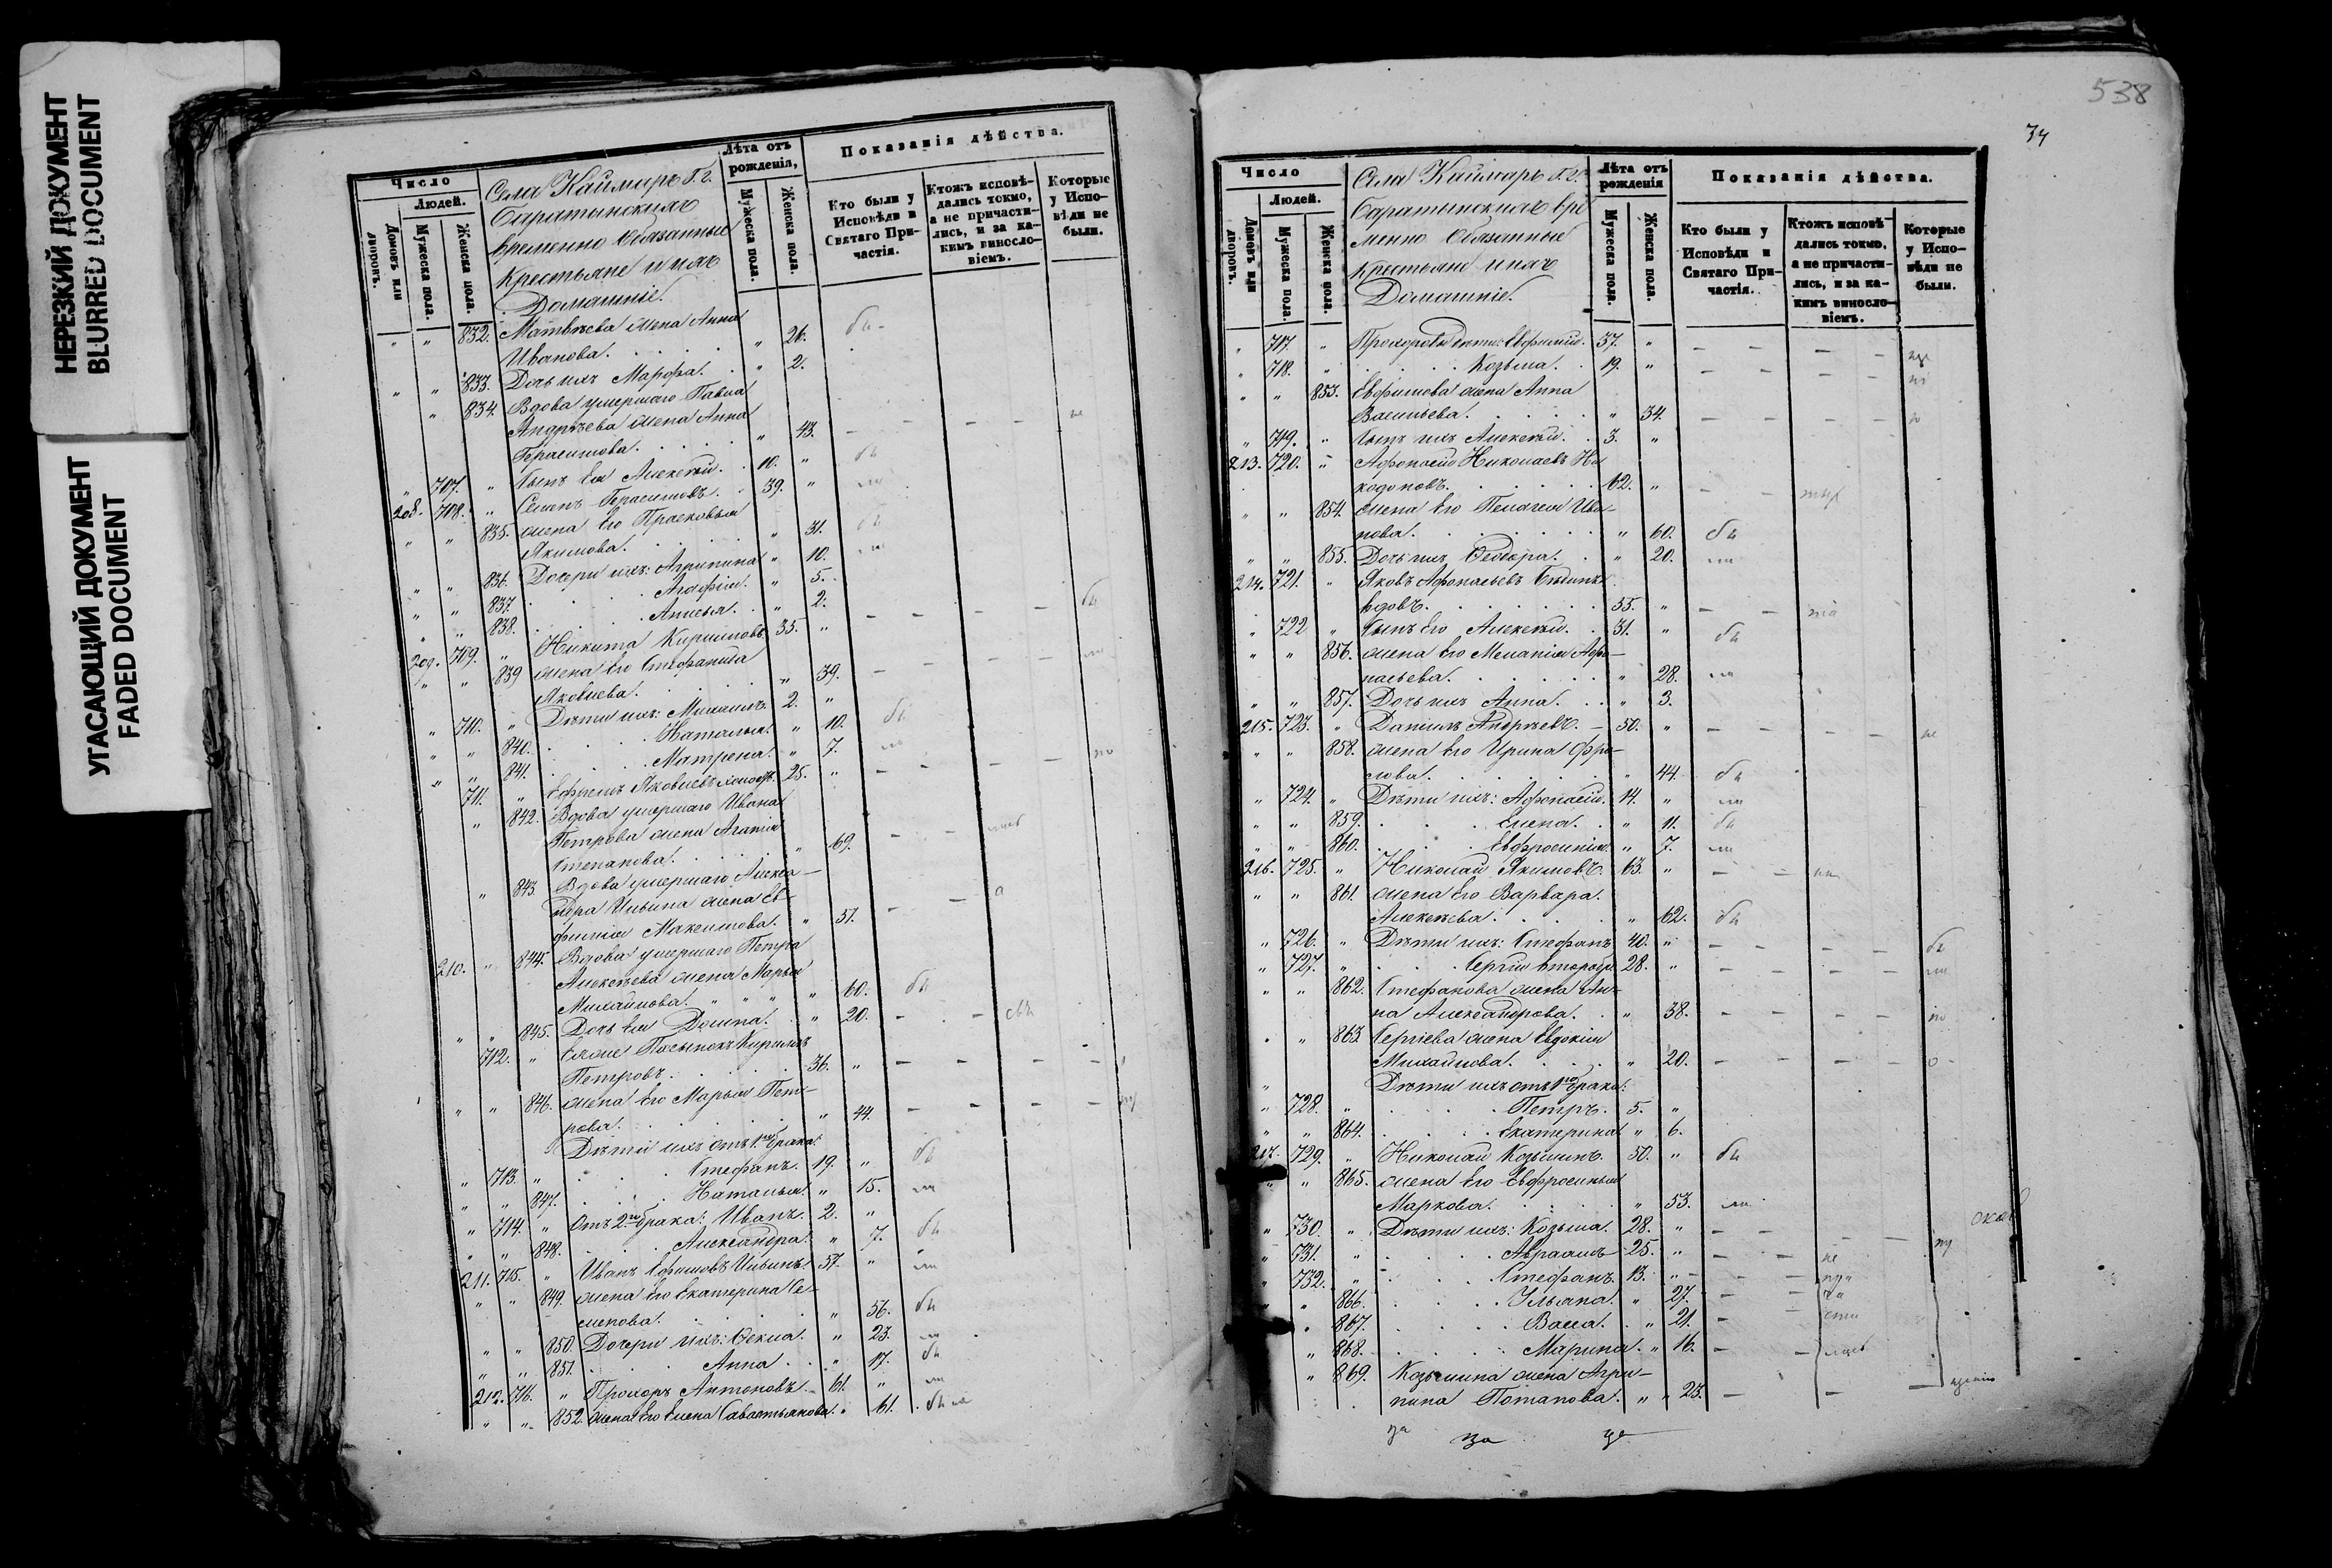 НЕРЕЗКИЙ ДОКУМЕНТ
BLURRED DOCUMENT
УГАСАЮЩИЙ ДОКУМЕНТ
FADED DOCUMENT
Число
Людей.
Домовъ или дворовъ.
Мужеска пола.
Женска пола.
Села Каймаръ Г. г.
Баратынскихъ
временно обязанные
Крестьяне и ихъ
Домашніе.
Лѣта отъ рожденія,
Мужеска пола.
Женска пола.
Показанія дѣйства.
Кто были у Исповѣди и Святаго Причастія.
Ктожъ исповѣдались токмо, а не причастились, и за какимъ винословіемъ.
Которые у Исповѣди не были.
" " 832. Матвѣева жена Анна
Иванова. " 26. бы
" " 833. Дочь ихъ Марфа. " 2.
" 834. Вдова умершаго Павла
Андрѣева жена Анна
Герасимова. " 43. — — — — не
" 707. " Сынъ Ея Алексѣй. 10. " бы
208. 708. " Семенъ Герасимовъ. 39. " ли
" " 835. жена Его Прасковья
Якимова. " 31. бы
" " 836. Дочери ихъ: Агрипина " 10. ли
" " 837. Агафія. " 5.
" " 838. Анисья. " 2.
209. 709. " Никита Кириловъ. 35. " — — — — бы
" " 839 жена Его Стефанида
Яковлева. " 39. — — — — ли
" 710. " Дѣти ихъ: Михаилъ. 2. "
" " 840. Наталья. " 10. бы
" " 841. Матрена. " 7. ли
" 711. " Ефремъ Яковлевъ 25. " — — — — но
" 842. Вдова умершаго Ивана
Петрова жена Агапія
Степанова. " 69. — —
" 843. Вдова умершаго Алекса—
ндра Ильина жена Ев—
фимія Максимова. " 51. — — а
210. " 844. Вдова умершаго Петра
Алексѣева жена Марья
Михайлова. " 60. бы
" " 845. Дочь Ея Домна. " 20. — —
712. " Еяже Пасынокъ Кирилъ
Петровъ. 36. " — — — —
" " 846. жена Его Марья Пет—
рова. " 44. — — — —
Дѣти ихъ отъ 1го брака:
" 713. " Стефанъ. 19. " бы
" " 847. Наталья. " 15. ли
" 714. " Отъ 2го брака: Иванъ. 2. "
" " 848. Александра. " 7. бы
211. 715. " Иванъ Ефимовъ Ильинъ. 57. " ли
" " 849. жена Его Екатерина Се—
менова. " 56. бы
" " 850. Дочери ихъ: Фекла. " 23. ли
" " 851. Анна. " 17. бы
212. 716. " Прохоръ Антоновъ. 61. " ли
" " 852. жена Его Елена Савастьянова. " 61. бы ли
538
74
Число
Людей.
Домовъ или дворовъ.
Мужеска пола.
Женска пола.
Села Каймаръ Г. г.
Баратынскихъ вре
менно обязанные
Крестьяне и ихъ
Домашніе.
Лѣта отъ рожденія
Мужеска пола.
Женска пола.
Показанія дѣйства.
Кто были у Исповѣди и Святаго Причастія.
Ктожъ исповѣдались токмо, а не причастились, и за какимъ винословіемъ.
Которые у Исповѣди не были.
" 717. " Прохоровы дѣти: Евфимій. 37. " — — — —
" 718. " Козьма. 19. " — — — —
" " 853. Евфимова жена Анна
Васильева. " 34. — — — —
" 719. " Сынъ ихъ Алексѣй. 3. "
213. 720. " Афонасій Николаевъ
62. " — —
" " 854. жена Его Пелагея Ива—
нова. " 60. бы
" " 855. Дочь ихъ Феодора. " 20. ли
214. 721. " Яковъ Афонасьевъ
вдовъ. 55. " — —
" 722 " Сынъ Его Алексѣй. 31. " бы
" " 856. жена Его Меланія Афо—
насьева. " 28. ли
" " 857. Дочь ихъ Анна. " 3.
215. 723. " Даніилъ Андрѣевъ. — 50. " — — — — не
" " 858. жена Его Ирина Фро—
лова. " 44. бы
" 724. " Дѣти ихъ: Афонасій. 14. " ли
" " 859. Елена. " 11. бы
" " 860. Евфросинія. " 7. ли
216. 725. " Николай Якимовъ. 63. " — —
" " 861. жена Его Варвара
Алексѣева. " 62. бы
" 726. " Дѣти ихъ: Стефанъ 40. " — — — — бы
" 727. " Сергій 28. " — — — — ли
" " 862. Стефанова жена Ан—
на Александрова. " 38. — — — — но
" " 863 Сергіева жена Евдокія
Михайлова. " 20. — — — —
" Дѣти ихъ отъ 1го брака:
" 728. " Петръ. 5. "
" " 864. Екатерина " 6.
217. 729. " Николай Козьминъ. 50. " бы
" " 865. жена Его Евфросинья
Маркова. " 53. ли
" 730. " Дѣти ихъ: Козьма. 28. " — — —
" 731. " Авраамъ 25. " — — не
" 732. " Стефанъ. 13. " — —
" " 866. Ульяна. " 27. — —
" 867. Васса. " 21. —
" 868. Марина. " 16. — —
" 869. Козьмина жена Агри—
пина Потапова. " 23. — — —
за
за